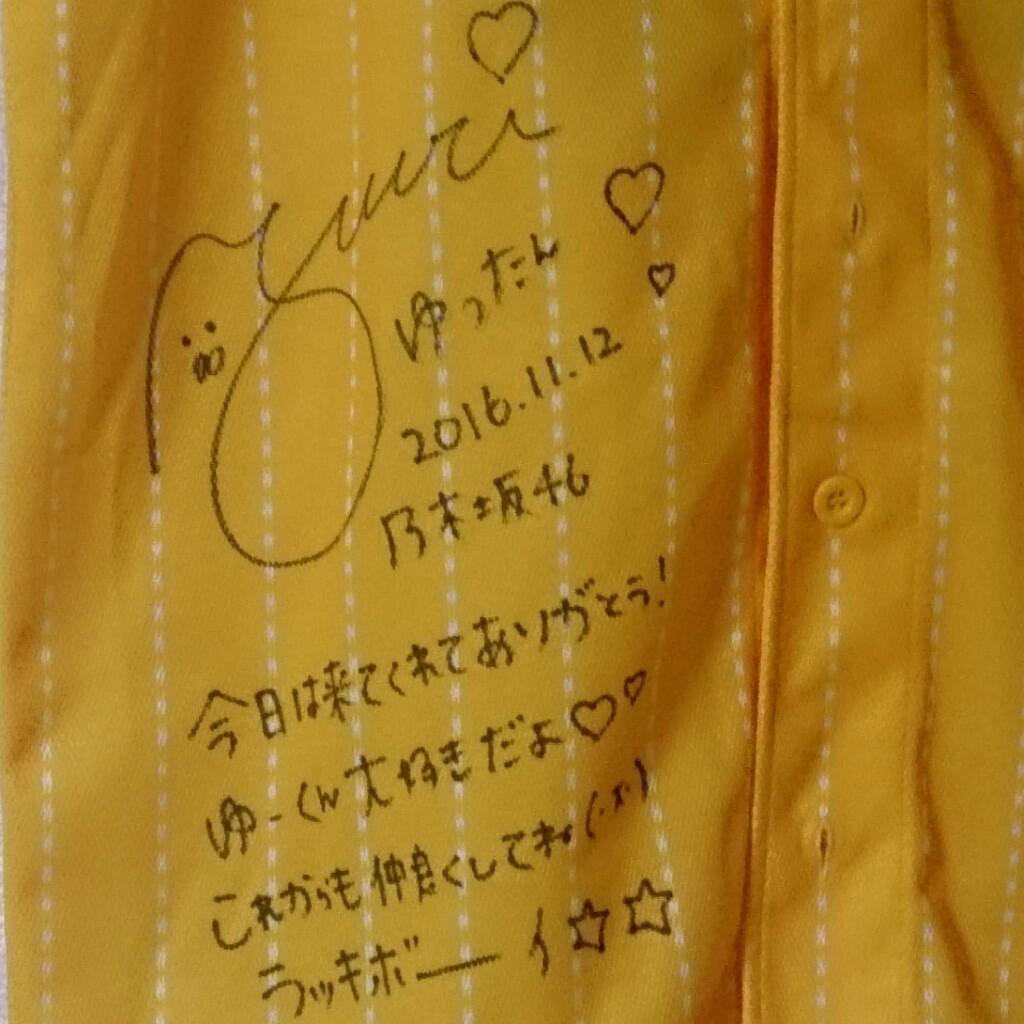 ゆったん
2016.11.12
乃木坂46
今日は来てくれてありがとう!
ゆーくん大好きだよ♡♡
これからも仲良くしてね(・x・)
ラッキボーイ☆☆